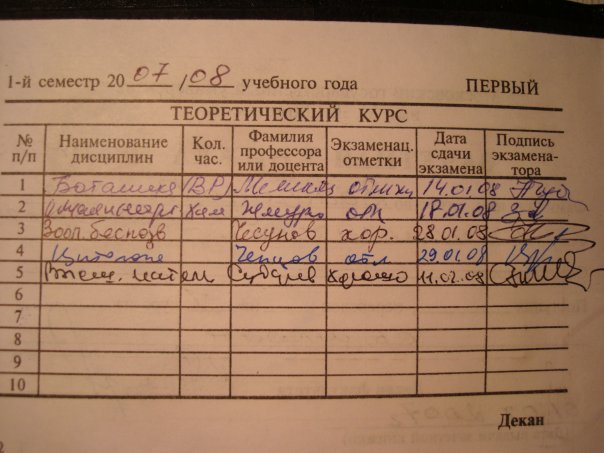 1-й семестр 2007/08 учебного года ПЕРВЫЙ
ТЕОРЕТИЧЕСКИЙ КУРС
№ п/п Наименование дисциплин Кол. час. Фамилия профессора или доцента Экзаменац. отметки Дата сдачи экзамена Подпись экзамена-тора
1 Ботаника (ВР) 14.01.08
2 отл 18.01.08
3 Зоол. беспозв Чесунов хор. 28.01.08
4 Цитология Ченцов отл 29.01.08
5 Хорошо 11.02.08
6
7
8
9
10
Декан